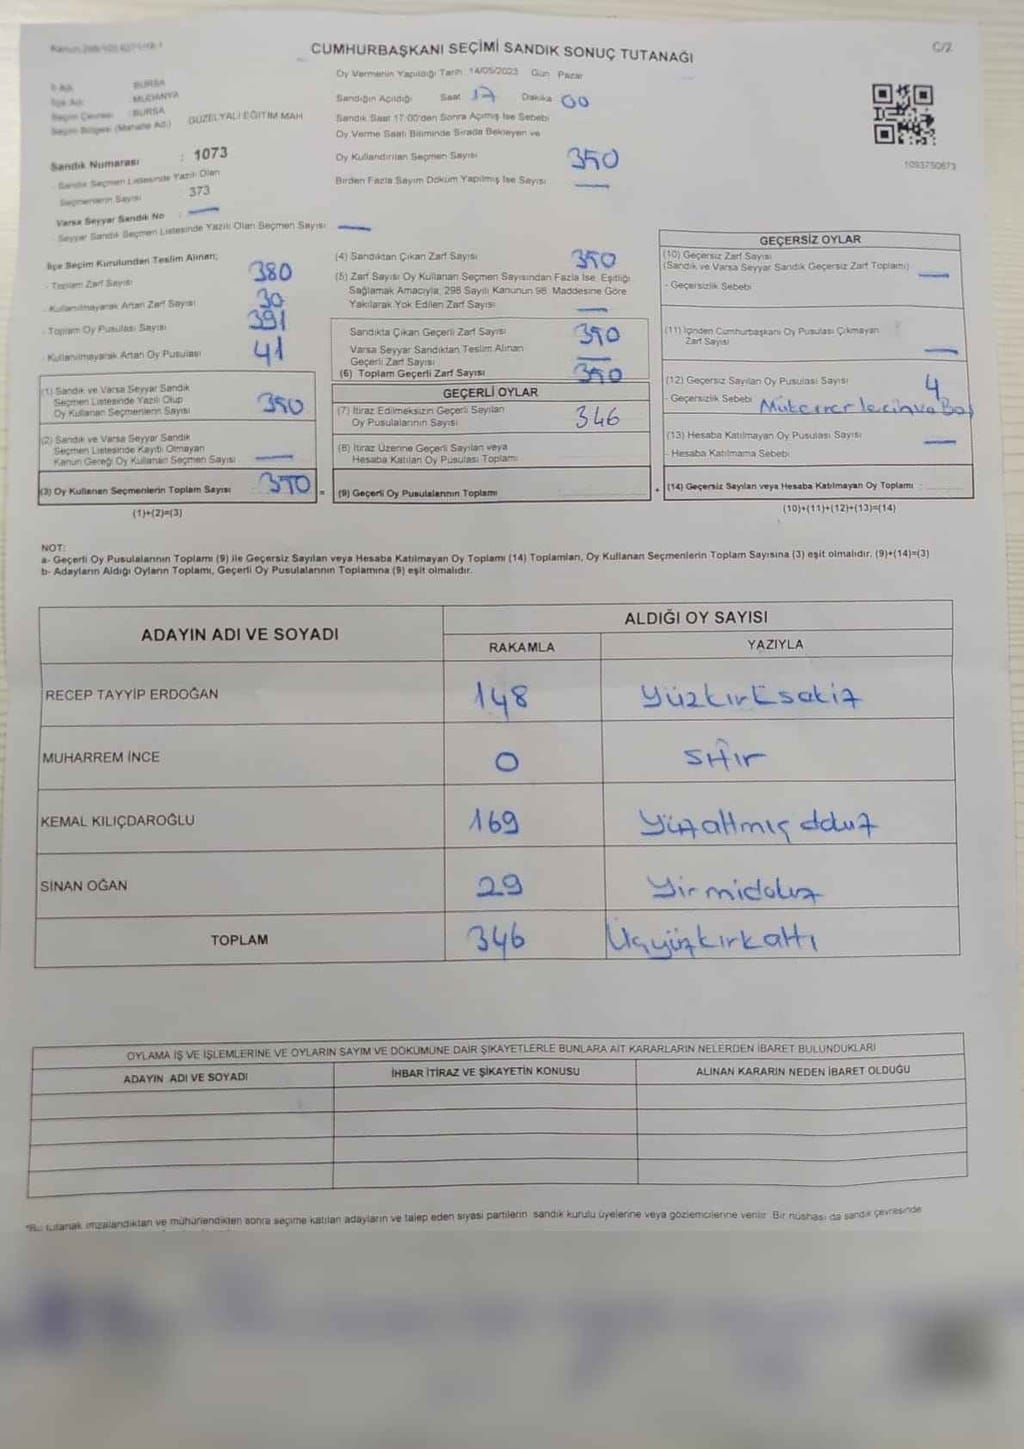 CUMHURBAŞKANI SEÇİMİ SANDIK SONUÇ TUTANAĞI
C/2
BURSA
MUDANYA
BURSA
Seçim Bölgesi (Mahalle Adı) GÜZELYALI EĞİTİM MAH
Sandık Numarası : 1073
Sandık Seçmen Listesinde Yazılı Olan
Seçmenlerin Sayısı 373
Varsa Seyyar Sandık No : —
Seyyar Sandık Seçmen Listesinde Yazılı Olan Seçmen Sayısı —
Oy Vermenin Yapıldığı Tarih 14/05/2023 Gün Pazar
Sandığın Açıldığı Saat 17 Dakika 00
Sandık Saat 17:00'den Sonra Açılmış İse Sebebi
Oy Verme Saati Bitiminde Sırada Bekleyen ve
Oy Kullandırılan Seçmen Sayısı 350
Birden Fazla Sayım Döküm Yapılmış İse Sayısı —
1093750673
İlçe Seçim Kurulundan Teslim Alınan;
- Toplam Zarf Sayısı 380
- Kullanılmayarak Artan Zarf Sayısı 30
- Toplam Oy Pusulası Sayısı 391
- Kullanılmayarak Artan Oy Pusulası 41
(1) Sandık ve Varsa Seyyar Sandık
Seçmen Listesinde Yazılı Olup
Oy Kullanan Seçmenlerin Sayısı 350
(2) Sandık ve Varsa Seyyar Sandık
Seçmen Listesinde Kayıtlı Olmayan
Kanun Gereği Oy Kullanan Seçmen Sayısı —
(3) Oy Kullanan Seçmenlerin Toplam Sayısı 350 =
(1)+(2)=(3)
(4) Sandıktan Çıkan Zarf Sayısı 350
(5) Zarf Sayısı Oy Kullanan Seçmen Sayısından Fazla İse, Eşitliği
Sağlamak Amacıyla, 298 Sayılı Kanunun 98. Maddesine Göre
Yakılarak Yok Edilen Zarf Sayısı —
Sandıkta Çıkan Geçerli Zarf Sayısı 350
Varsa Seyyar Sandıktan Teslim Alınan
Geçerli Zarf Sayısı —
(6) Toplam Geçerli Zarf Sayısı 350
GEÇERLİ OYLAR
(7) İtiraz Edilmeksizin Geçerli Sayılan
Oy Pusulalarının Sayısı 346
(8) İtiraz Üzerine Geçerli Sayılan veya
Hesaba Katılan Oy Pusulası Toplamı
(9) Geçerli Oy Pusulalarının Toplamı +
GEÇERSİZ OYLAR
(10) Geçersiz Zarf Sayısı
(Sandık ve Varsa Seyyar Sandık Geçersiz Zarf Toplamı) —
- Geçersizlik Sebebi
(11) İçinden Cumhurbaşkanı Oy Pusulası Çıkmayan
Zarf Sayısı —
(12) Geçersiz Sayılan Oy Pusulası Sayısı 4
- Geçersizlik Sebebi
(13) Hesaba Katılmayan Oy Pusulası Sayısı —
- Hesaba Katılmama Sebebi
(14) Geçersiz Sayılan veya Hesaba Katılmayan Oy Toplamı :
(10)+(11)+(12)+(13)=(14)
NOT:
a- Geçerli Oy Pusulalarının Toplamı (9) ile Geçersiz Sayılan veya Hesaba Katılmayan Oy Toplamı (14) Toplamları, Oy Kullanan Seçmenlerin Toplam Sayısına (3) eşit olmalıdır. (9)+(14)=(3)
b- Adayların Aldığı Oyların Toplamı, Geçerli Oy Pusulalarının Toplamına (9) eşit olmalıdır.
ADAYIN ADI VE SOYADI
ALDIĞI OY SAYISI
RAKAMLA YAZIYLA
RECEP TAYYİP ERDOĞAN 148 Yüzkırksekiz
MUHARREM İNCE 0 Sıfır
KEMAL KILIÇDAROĞLU 169 Yüzaltmış dokuz
SİNAN OĞAN 29 Yirmidokuz
TOPLAM 346 Üçyüzkırkaltı
OYLAMA İŞ VE İŞLEMLERİNE VE OYLARIN SAYIM VE DÖKÜMÜNE DAİR ŞİKAYETLERLE BUNLARA AİT KARARLARIN NELERDEN İBARET BULUNDUKLARI
ADAYIN ADI VE SOYADI İHBAR İTİRAZ VE ŞİKAYETİN KONUSU ALINAN KARARIN NEDEN İBARET OLDUĞU
*Bu tutanak imzalandıktan ve mühürlendikten sonra seçime katılan adayların ve talep eden siyasi partilerin sandık kurulu üyelerine veya gözlemcilerine verilir. Bir nüshası da sandık çevresinde